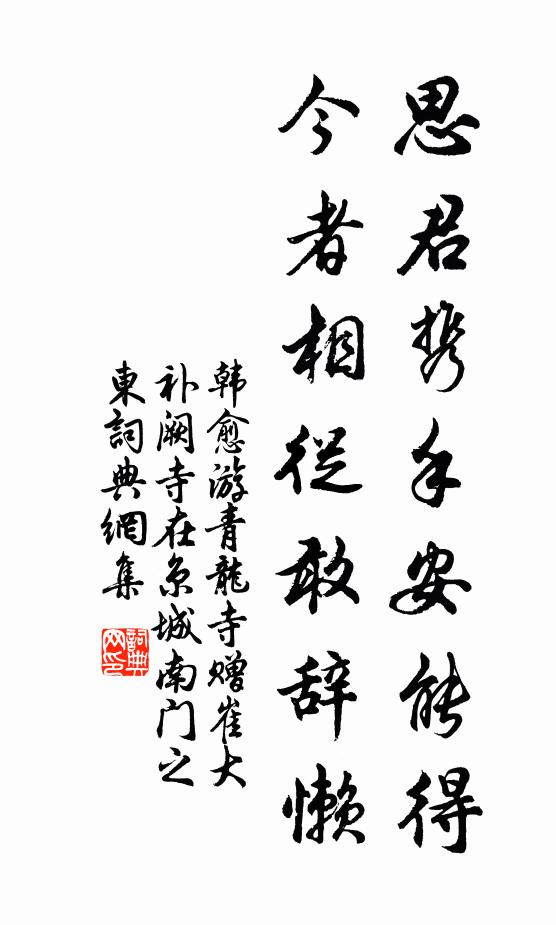 思君携手安能得
今者相從敢辞懶
韩愈游青龍寺赠崔大
补阙寺在京城南门之
東詞典網集
詞典网印